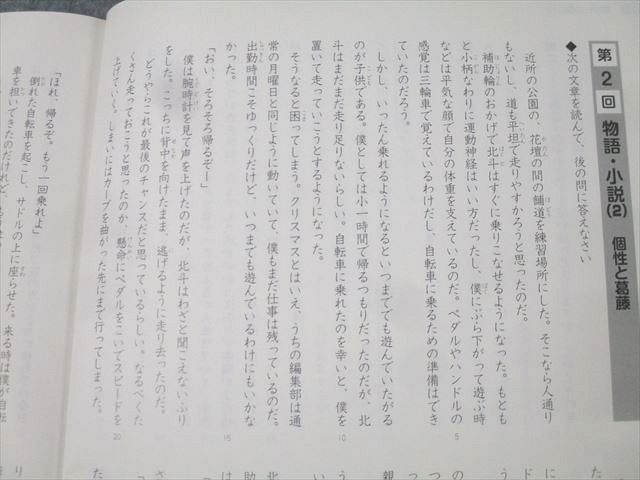 第2回 物語・小説(2) 個性と葛藤
◆次の文章を読んで、後の問に答えなさい
近所の公園の、花壇の間の舗道を練習場所にした。そこなら人通り
もないし、道も平坦で走りやすかろうと思ったのだ。
補助輪のおかげで北斗はすぐに乗りこなせるようになった。もとも
と小柄なわりに運動神経はいい方だったし、僕にぶら下がって遊ぶ時
などは平気な顔で自分の体重を支えているのだ。ペダルやハンドルの
感覚は三輪車で覚えているわけだし、自転車に乗るための準備はでき
ていたのだろう。
しかし、いったん乗れるようになるといつまででも遊んでいたがる
のが子供である。僕としては小一時間で帰るつもりだったのだが、北
斗はまだまだ走り足りないらしい。自転車に乗れたのを幸いと、僕を
置いて走っていこうとするようになった。
そうなると困ってしまう。クリスマスとはいえ、うちの編集部は通
常の月曜日と同じように動いていて、僕もまだ仕事は残っているのだ。
出勤時間こそゆっくりだけど、いつまでも遊んでいるわけにもいかな
かった。
「おい、そろそろ帰るぞー」
僕は腕時計を見て声を上げたのだが、北斗はわざと聞こえないふり
をした。こっちに背中を向けたまま、逃げるように走り去ったのだ。
どうやらこれが最後のチャンスだと思っているらしい。なるべくた
くさん走っておこうと思ったのか、懸命にペダルをこいでスピードを
上げていく。しまいにはカーブを曲がった先にまで行ってしまった。
5
10
15
20
「ほれ、帰るぞ。もう一回乗れよ」
倒れた自転車を起こし、サドルの上に座らせた。来る時は僕が自転
車を担いできたのだけれど